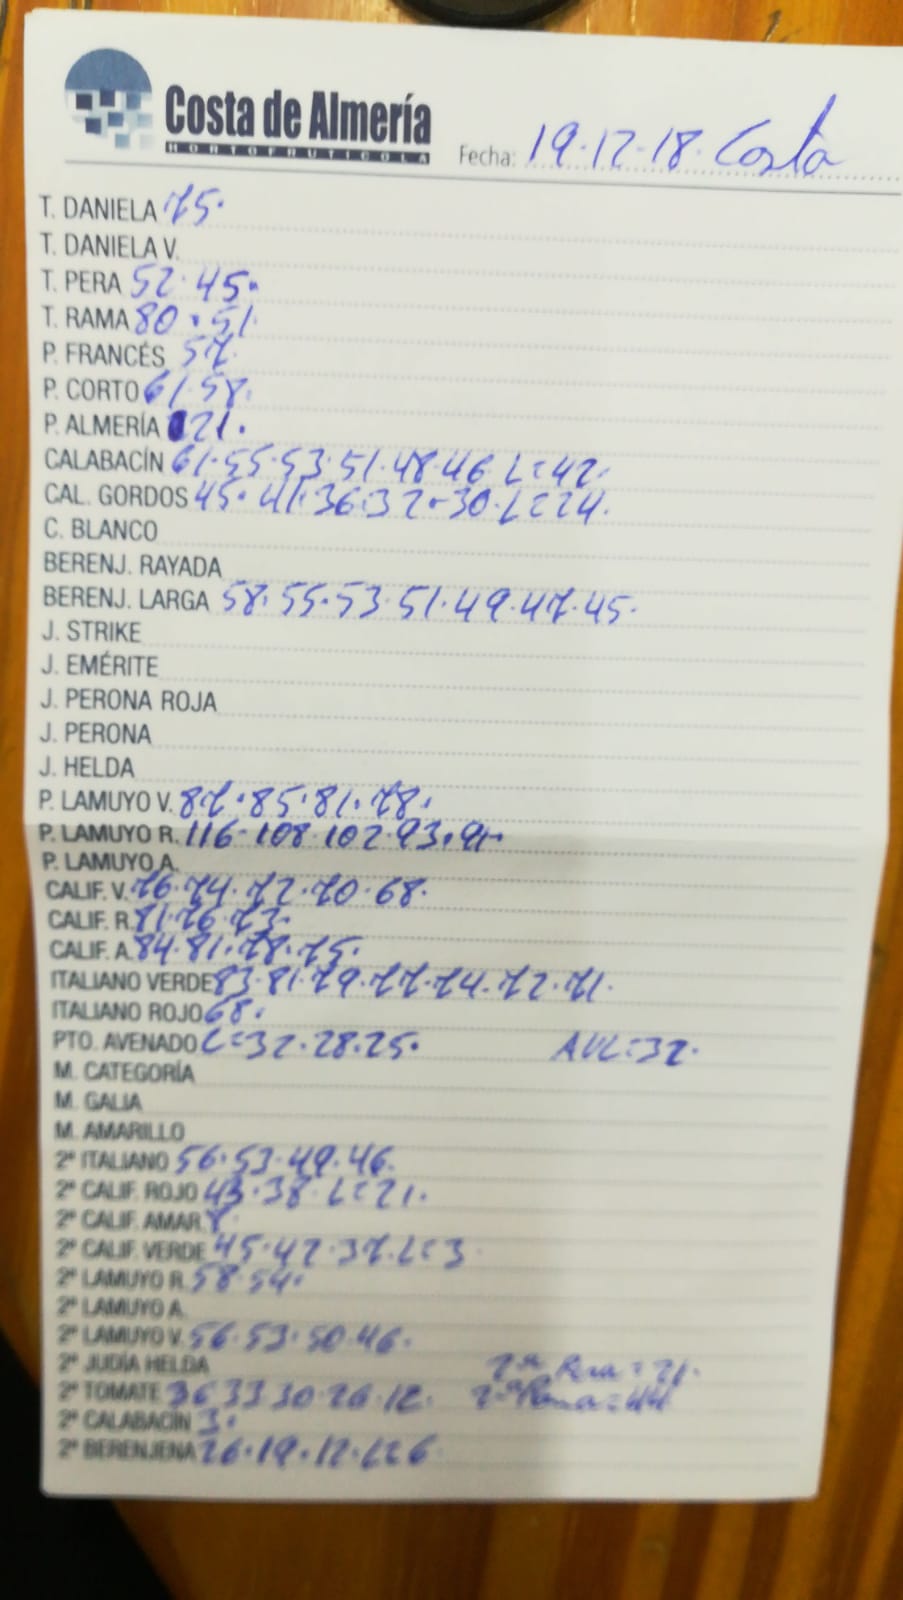 Costa de Almería
HORTOFRUTICOLA
Fecha: 19.12.18. Costa
T. DANIELA 75.
T. DANIELA V.
T. PERA 52.45.
T. RAMA 80.51.
P. FRANCÉS 57.
P. CORTO 61.58.
P. ALMERÍA 21.
CALABACÍN 61.55.53.51.48.46.L=42.
CAL. GORDOS 45.41.36.32.30.L=24.
C. BLANCO
BERENJ. RAYADA
BERENJ. LARGA 58.55.53.51.49.47.45.
J. STRIKE
J. EMÉRITE
J. PERONA ROJA
J. PERONA
J. HELDA
P. LAMUYO V. 87.85.81.78.
P. LAMUYO R. 116.108.102.93.91.
P. LAMUYO A.
CALIF. V. 76.74.72.70.68.
CALIF. R. 81.76.73.
CALIF. A. 84.81.78.75.
ITALIANO VERDE 83.81.79.77.74.72.71.
ITALIANO ROJO 68.
PTO. AVENADO C=32.28.25. AVL=32.
M. CATEGORÍA
M. GALIA
M. AMARILLO
2ª ITALIANO 56.53.49.46.
2ª CALIF. ROJO 43.38.L=21.
2ª CALIF. AMAR.
2ª CALIF. VERDE 45.42.37.L=3.
2ª LAMUYO R. 58.54.
2ª LAMUYO A.
2ª LAMUYO V. 56.53.50.46.
2ª JUDÍA HELDA 2ª Pera=21.
2ª TOMATE 36 33 30.26.12. 2ª Rama=44
2ª CALABACÍN 3.
2ª BERENJENA 26.19.12.L=6